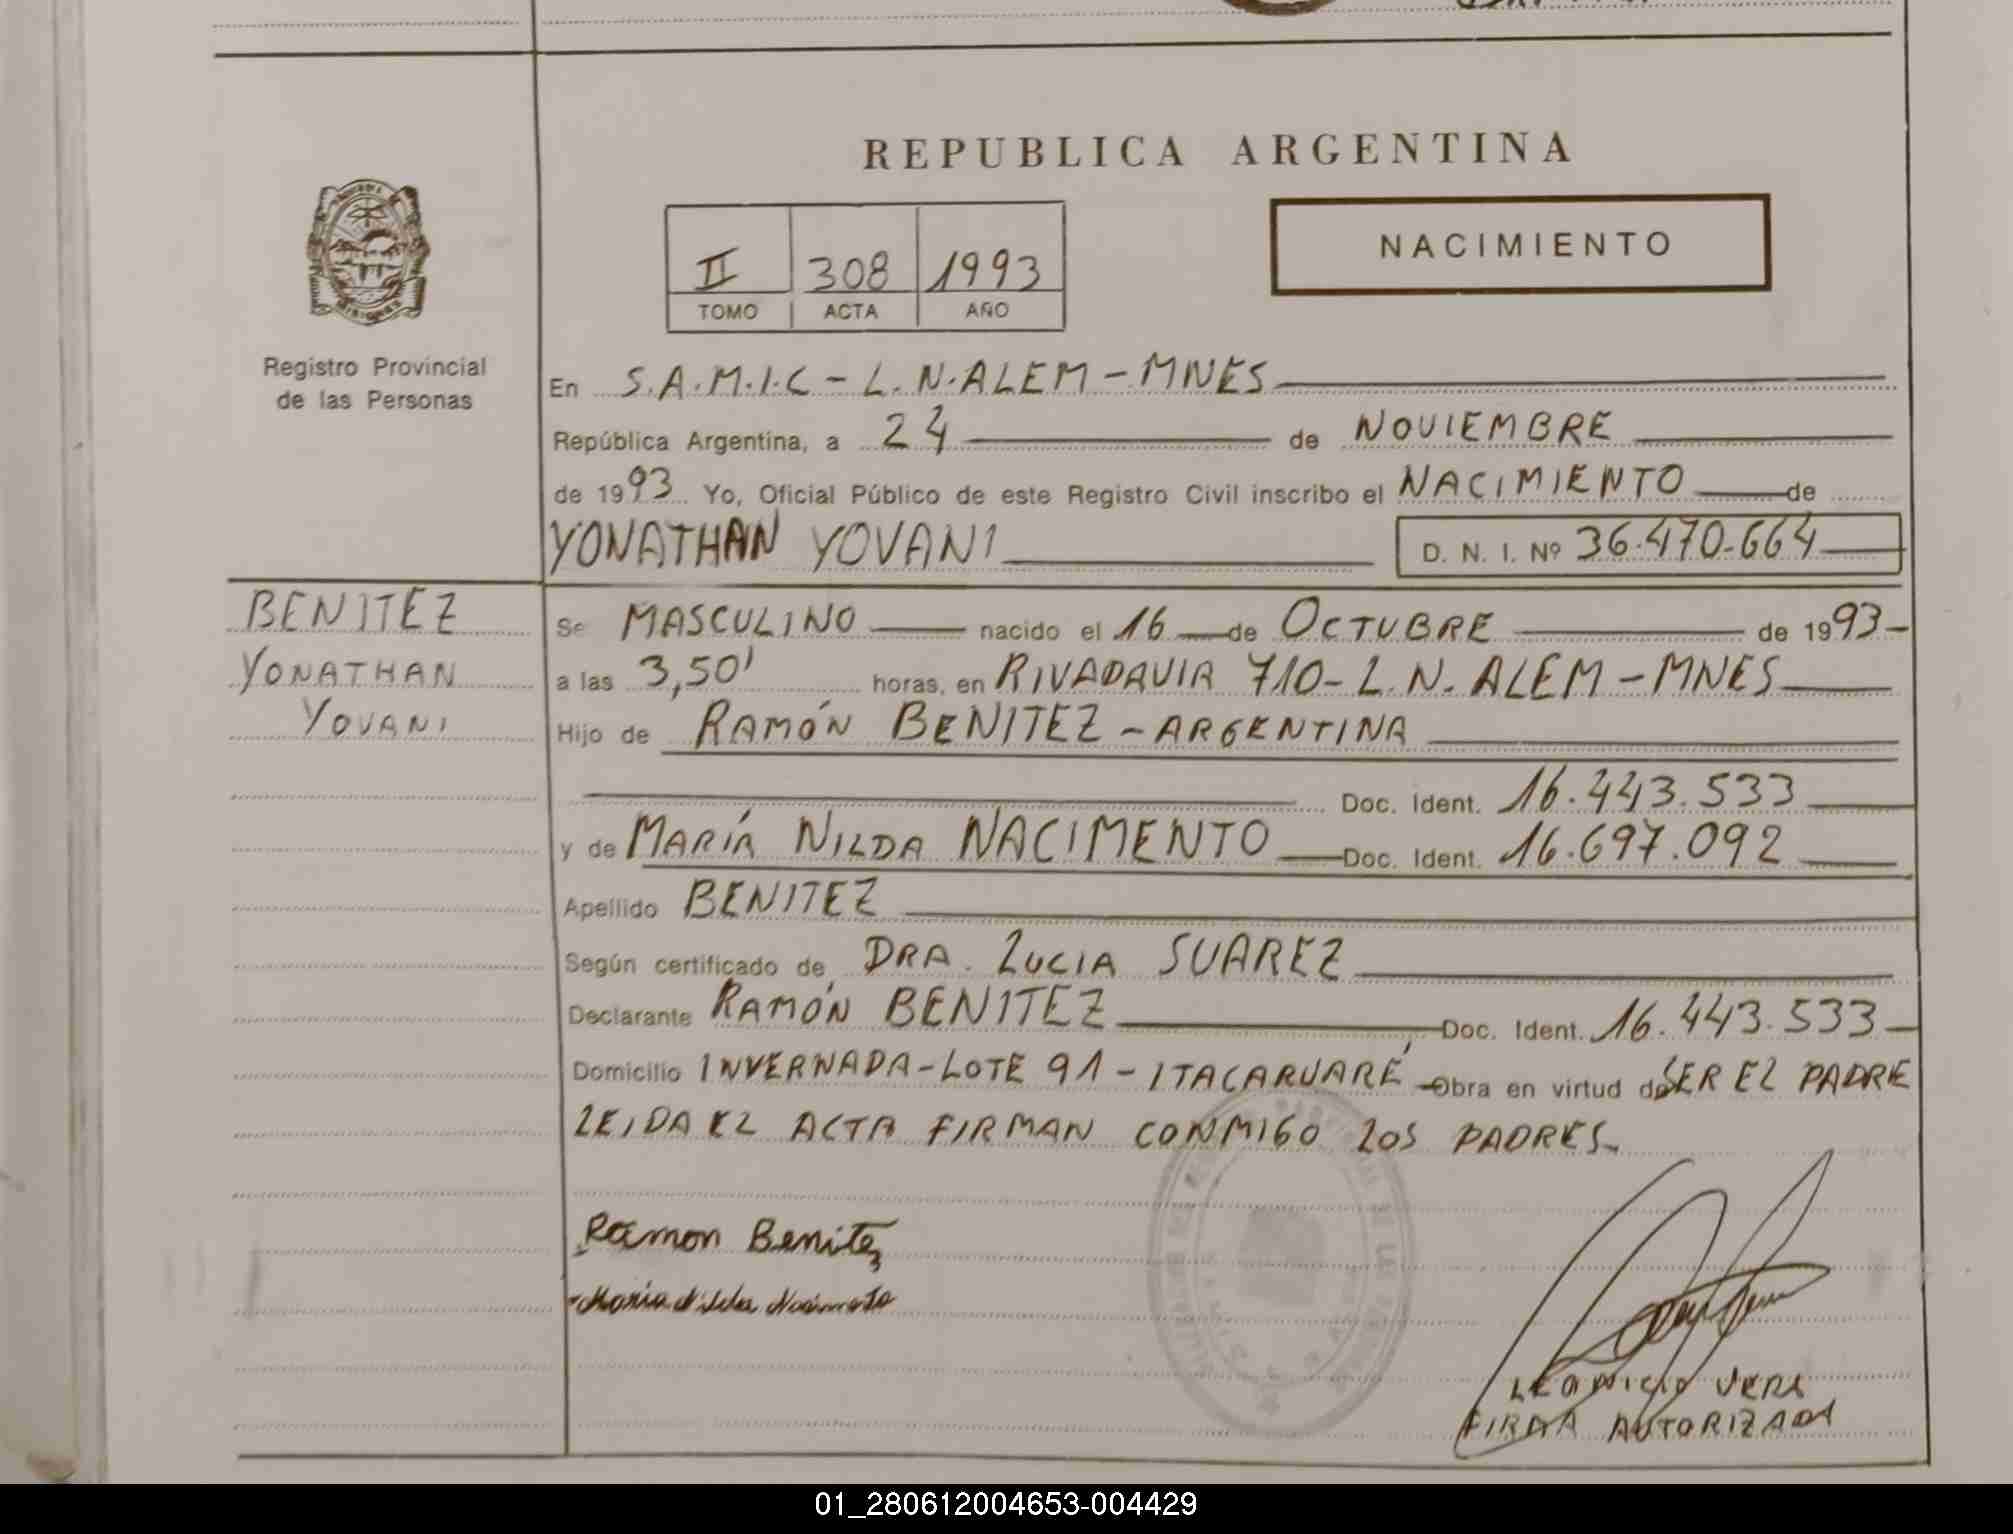 REPUBLICA ARGENTINA
II 308 1993
TOMO ACTA AÑO
NACIMIENTO
Registro Provincial
de las Personas
En S.A.M.I.C - L.N.ALEM - MNES
República Argentina, a 24 de NOVIEMBRE
de 1993 Yo, Oficial Público de este Registro Civil inscribo el NACIMIENTO de
YONATHAN YOVANI D. N. I. Nº 36.470.664
BENITEZ
YONATHAN
YOVANI
Se MASCULINO nacido el 16 de OCTUBRE de 1993
a las 3,50' horas, en RIVADAVIA 710 - L.N. ALEM - MNES
Hijo de RAMÓN BENITEZ - ARGENTINA
Doc. Ident. 16.443.533
y de MARÍA NILDA NACIMENTO Doc. Ident. 16.697.092
Apellido BENITEZ
Según certificado de DRA. LUCIA SUAREZ
Declarante RAMÓN BENITEZ Doc. Ident. 16.443.533
Domicilio INVERNADA - LOTE 91 - ITACARUARÉ Obra en virtud de SER EL PADRE
LEIDA EL ACTA FIRMAN CONMIGO LOS PADRES
Ramon Benitez
Maria Nilda Nacimento
VERA
FIRMA AUTORIZADA
01_280612004653-004429